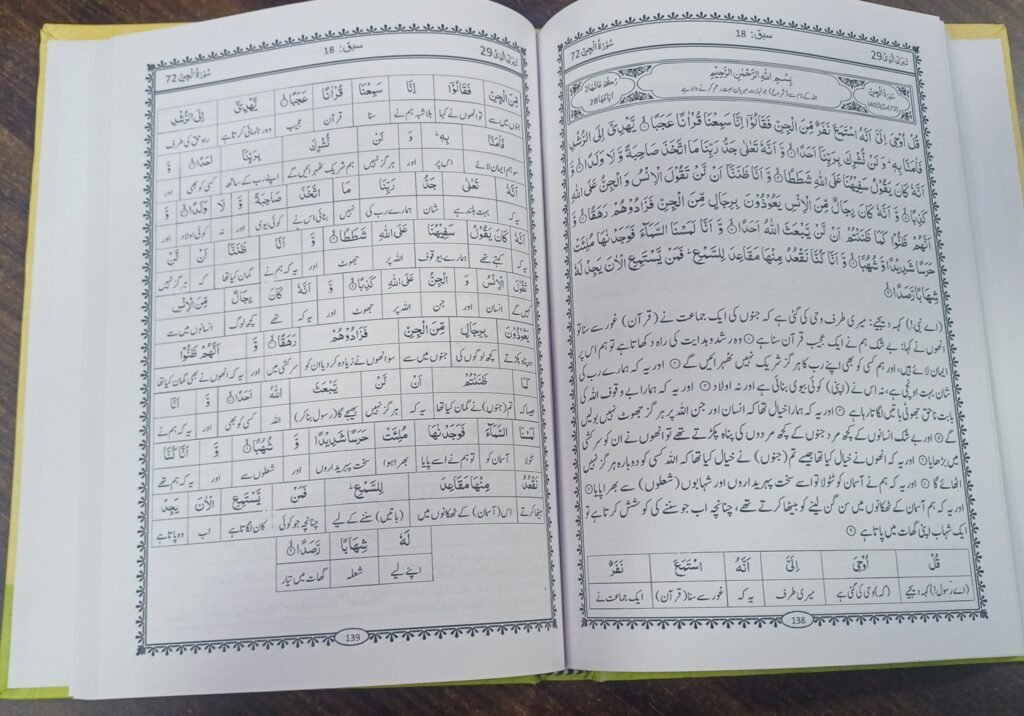 تَبٰرَكَ الَّذِیْ 29
سبق: 18
سُوْرَةُ الْجِنّ 72
سُوْرَةُ الْجِنّ
بِسْمِ اللّٰهِ الرَّحْمٰنِ الرَّحِیْمِ
اللہ کے نام سے (شروع) جو نہایت مہربان بہت رحم کرنے والا ہے
قُلْ اُوْحِیَ اِلَیَّ اَنَّهُ اسْتَمَعَ نَفَرٌ مِّنَ الْجِنِّ فَقَالُوْۤا اِنَّا سَمِعْنَا قُرْاٰنًا عَجَبًا ① یَّهْدِیْۤ اِلَی الرُّشْدِ
فَاٰمَنَّا بِهٖ ؕ وَ لَنْ نُّشْرِكَ بِرَبِّنَاۤ اَحَدًا ② وَّ اَنَّهٗ تَعٰلٰی جَدُّ رَبِّنَا مَا اتَّخَذَ صَاحِبَةً وَّ لَا وَلَدًا ③ وَّ
اَنَّهٗ كَانَ یَقُوْلُ سَفِیْهُنَا عَلَی اللّٰهِ شَطَطًا ④ وَّ اَنَّا ظَنَنَّاۤ اَنْ لَّنْ تَقُوْلَ الْاِنْسُ وَ الْجِنُّ عَلَی اللّٰهِ
كَذِبًا ⑤ وَّ اَنَّهٗ كَانَ رِجَالٌ مِّنَ الْاِنْسِ یَعُوْذُوْنَ بِرِجَالٍ مِّنَ الْجِنِّ فَزَادُوْهُمْ رَهَقًا ⑥ وَّ
اَنَّهُمْ ظَنُّوْا كَمَا ظَنَنْتُمْ اَنْ لَّنْ یَّبْعَثَ اللّٰهُ اَحَدًا ⑦ وَّ اَنَّا لَمَسْنَا السَّمَآءَ فَوَجَدْنٰهَا مُلِئَتْ
حَرَسًا شَدِیْدًا وَّ شُهُبًا ⑧ وَّ اَنَّا كُنَّا نَقْعُدُ مِنْهَا مَقَاعِدَ لِلسَّمْعِ ؕ فَمَنْ یَّسْتَمِعِ الْاٰنَ یَجِدْ لَهٗ
شِهَابًا رَّصَدًا ⑨
(اے نبی!) کہہ دیجیے: میری طرف وحی کی گئی ہے کہ جنوں کی ایک جماعت نے (قرآن) غور سے سنا تو
انھوں نے کہا: بے شک ہم نے ایک عجیب قرآن سنا ہے ① وہ رشد و ہدایت کی راہ دکھاتا ہے تو ہم اس پر
ایمان لائے ہیں، اور ہم کسی کو بھی اپنے رب کا ہرگز شریک نہیں ٹھہرائیں گے ② اور یہ کہ ہمارے رب کی
شان بہت اونچی ہے، نہ اس نے (اپنی) کوئی بیوی بنائی ہے اور نہ اولاد ③ اور یہ کہ ہمارا بے وقوف اللہ کی
بابت ناحق جھوٹی باتیں لگاتا رہا ہے ④ اور یہ کہ ہمارا خیال تھا کہ انسان اور جن اللہ پر ہرگز جھوٹ نہیں بولیں
گے ⑤ اور بے شک انسانوں کے کچھ مرد جنوں کے کچھ مردوں کی پناہ پکڑتے تھے تو انھوں نے ان کو سرکشی
میں بڑھایا ⑥ اور یہ کہ انھوں نے خیال کیا تھا جیسے تم (جنوں) نے خیال کیا تھا کہ اللہ کسی کو دوبارہ ہرگز نہیں
اٹھائے گا ⑦ اور یہ کہ ہم نے آسمان کو ٹٹولا تو اسے سخت پہریداروں اور شہابوں (شعلوں) سے بھرا پایا ⑧
اور یہ کہ ہم آسمان کے ٹھکانوں میں سن گن لینے کو بیٹھا کرتے تھے، چنانچہ اب جو سننے کی کوشش کرتا ہے تو
ایک شہاب اپنی گھات میں پاتا ہے ⑨
قُلْ اُوْحِیَ اِلَیَّ اَنَّهُ اسْتَمَعَ نَفَرٌ
(اے رسول!) کہہ دیجیے (کہ) وحی کی گئی ہے میری طرف یہ کہ غور سے سنا (قرآن) ایک جماعت نے
138
تَبٰرَكَ الَّذِیْ 29
سبق: 18
سُوْرَةُ الْجِنّ 72
مِّنَ الْجِنِّ فَقَالُوْۤا اِنَّا سَمِعْنَا قُرْاٰنًا عَجَبًا ① یَّهْدِیْۤ اِلَی الرُّشْدِ
جنوں میں سے تو انھوں نے کہا بلاشبہ ہم نے سنا قرآن عجیب وہ رہنمائی کرتا ہے راہ حق کی طرف
فَاٰمَنَّا بِهٖ ؕ وَ لَنْ نُّشْرِكَ بِرَبِّنَاۤ اَحَدًا ② وَّ
سو ہم ایمان لائے اس پر اور ہرگز نہیں ہم شریک ٹھہرائیں گے اپنے رب کے ساتھ کسی کو بھی اور
اَنَّهٗ تَعٰلٰی جَدُّ رَبِّنَا مَا اتَّخَذَ صَاحِبَةً وَّ لَا وَلَدًا ③ وَّ
یہ کہ بہت بلند ہے شان ہمارے رب کی نہیں بنائی اس نے کوئی بیوی اور نہ کوئی اولاد اور
اَنَّهٗ كَانَ یَقُوْلُ سَفِیْهُنَا عَلَی اللّٰهِ شَطَطًا ④ وَّ اَنَّا ظَنَنَّاۤ اَنْ لَّنْ
یہ کہ کہتے تھے ہمارے بیوقوف اللہ پر جھوٹ اور یہ کہ ہم نے گمان کیا تھا کہ ہرگز نہیں
تَقُوْلَ الْاِنْسُ وَ الْجِنُّ عَلَی اللّٰهِ كَذِبًا ⑤ وَّ اَنَّهٗ كَانَ رِجَالٌ مِّنَ الْاِنْسِ
کہیں گے انسان اور جن اللہ پر جھوٹ اور یہ کہ تھے کچھ لوگ انسانوں میں سے
یَعُوْذُوْنَ بِرِجَالٍ مِّنَ الْجِنِّ فَزَادُوْهُمْ رَهَقًا ⑥ وَّ اَنَّهُمْ ظَنُّوْا
وہ پناہ پکڑتے کچھ لوگوں کی جنوں میں سے سو انھوں نے زیادہ کر دیا ان کو سرکشی میں اور یہ کہ انھوں نے بھی گمان کیا تھا
كَمَا ظَنَنْتُمْ اَنْ لَّنْ یَّبْعَثَ اللّٰهُ اَحَدًا ⑦ وَّ اَنَّا
جیسا کہ تم (جنوں) نے گمان کیا تھا یہ کہ ہرگز نہیں بھیجے گا (رسول بنا کر) اللہ کسی کو بھی اور یہ کہ ہم نے
لَمَسْنَا السَّمَآءَ فَوَجَدْنٰهَا مُلِئَتْ حَرَسًا شَدِیْدًا وَّ شُهُبًا ⑧ وَّ اَنَّا كُنَّا
ٹٹولا آسمان کو تو ہم نے اسے پایا بھرا ہوا سخت پہریداروں اور شعلوں سے اور یہ کہ ہم تھے
نَقْعُدُ مِنْهَا مَقَاعِدَ لِلسَّمْعِ ؕ فَمَنْ یَّسْتَمِعِ الْاٰنَ یَجِدْ
بیٹھا کرتے اس (آسمان) کے ٹھکانوں میں (باتیں) سننے کے لیے چنانچہ جو کوئی کان لگاتا ہے اب وہ پاتا ہے
لَهٗ شِهَابًا رَّصَدًا ⑨
اپنے لیے شعلہ گھات میں تیار
139